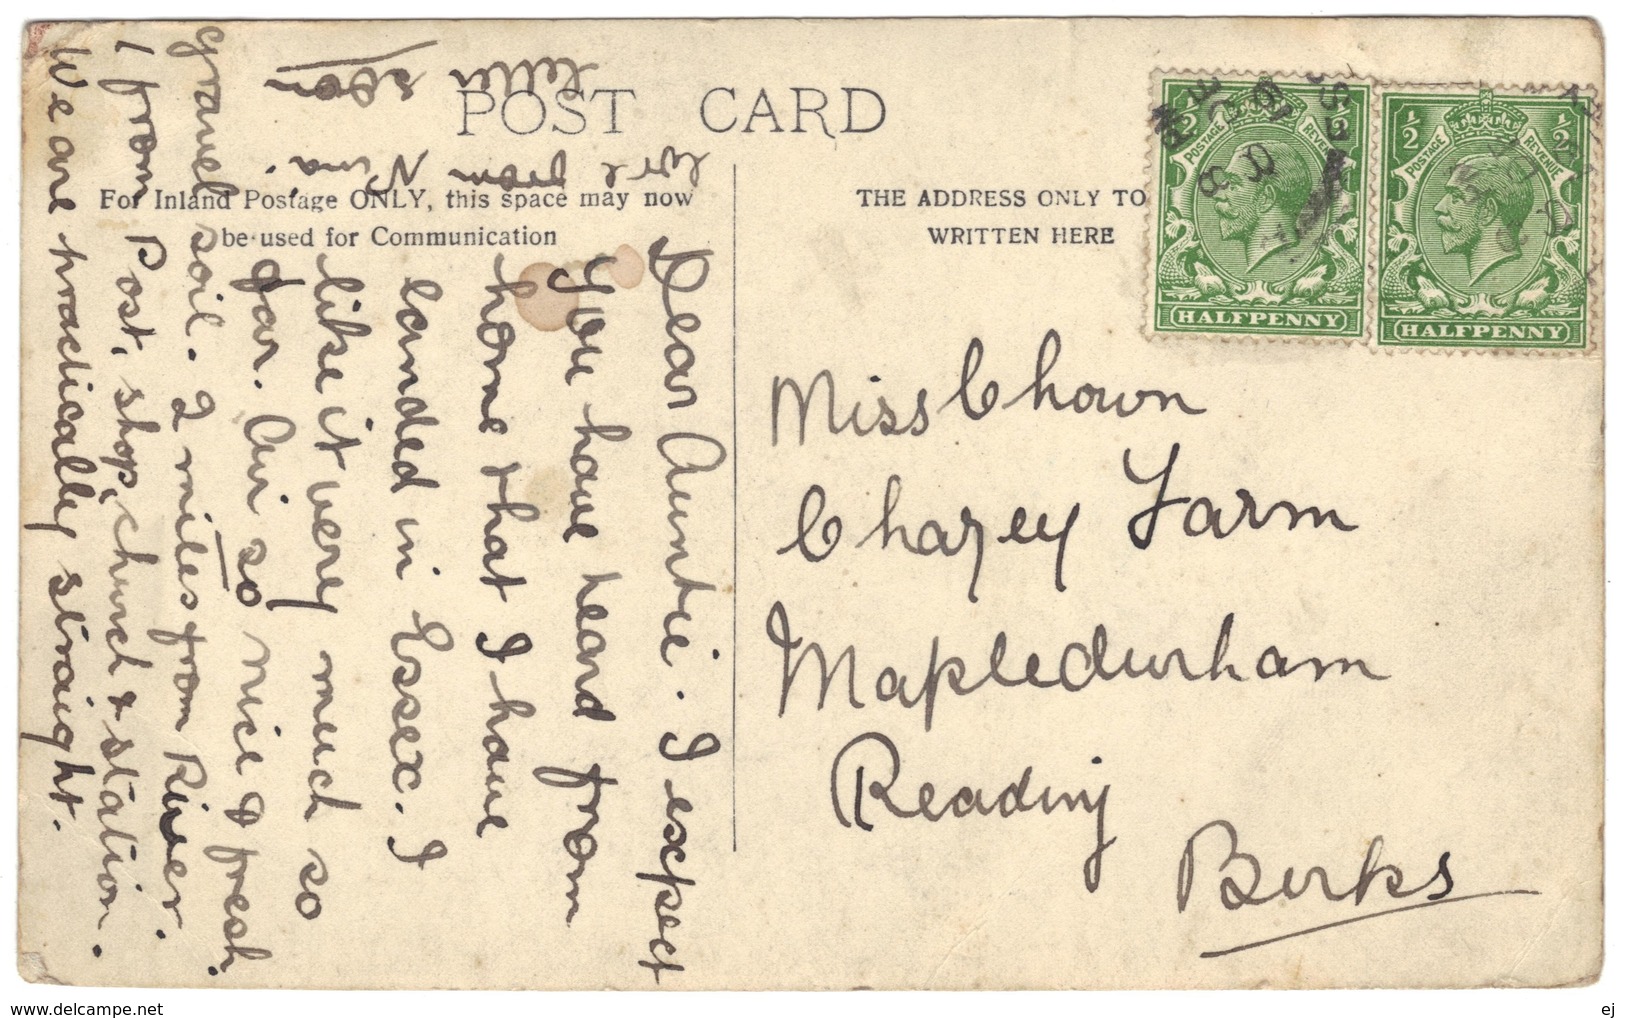 POST CARD
For Inland Postage ONLY, this space may now
be used for Communication
THE ADDRESS ONLY TO
WRITTEN HERE
Dear Auntie. I expect
you have heard from
home that I have
landed in Essex. I
like it very much so
far. Air so nice & fresh.
gravel soil. 2 miles from River.
1 from Post, shop, church & station.
We are practically straight.
letter soon
love from Nina.
Miss Chown
Chazey Farm
Mapledurham
Reading
Berks
½ ½
POSTAGE REVENUE
HALFPENNY
½ ½
POSTAGE REVENUE
HALFPENNY
www.delcampe.net
ej